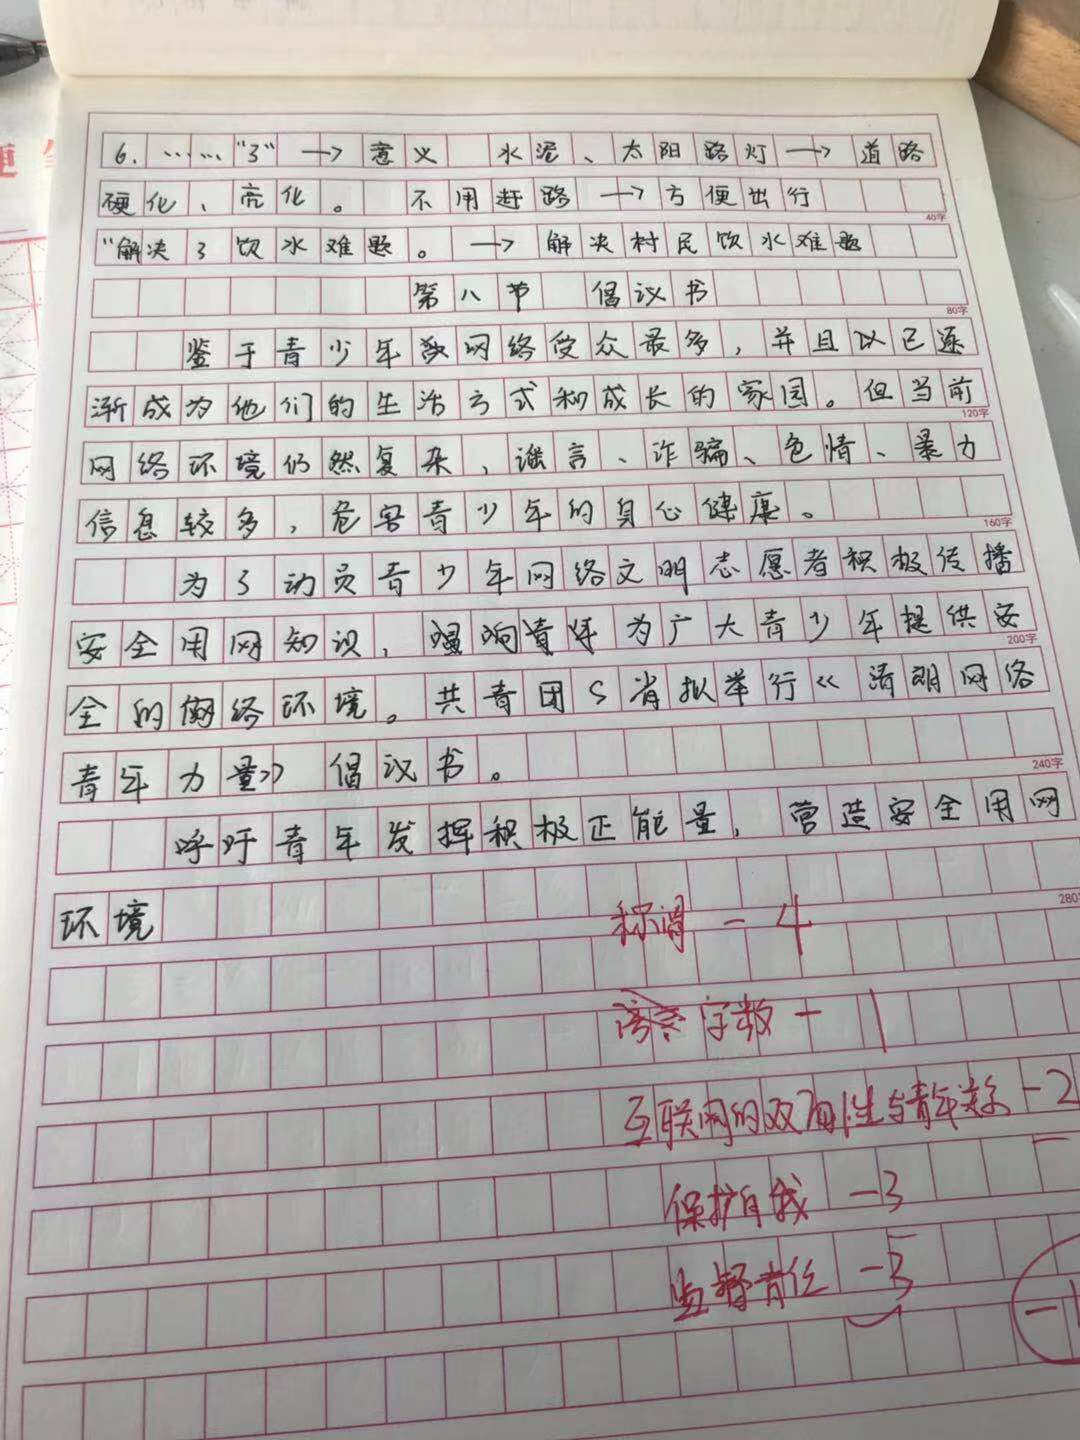 6. …… "了" → 意义 水泥、太阳路灯 → 道路
硬化、亮化。 不用赶路 → 方便出行
"解决了饮水难题。 → 解决村民饮水难题
40字
第八节 倡议书
80字
鉴于青少年网络受众最多，并且以已逐
渐成为他们的生活方式和成长的家园。但当前
120字
网络环境仍然复杂，谣言、诈骗、色情、暴力
信息较多，危害青少年的身心健康。
160字
为了动员青少年网络文明志愿者积极传播
安全用网知识，青年为广大青少年提供安
200字
全的网络环境。共青团S省拟举行《清朗网络
青年力量》倡议书。
240字
呼吁青年发挥积极正能量，营造安全用网
环境
280
称谓 -4
字数 -1
互联网的双面性与青年关系 -2
保护自我 -3
监督责任 -3